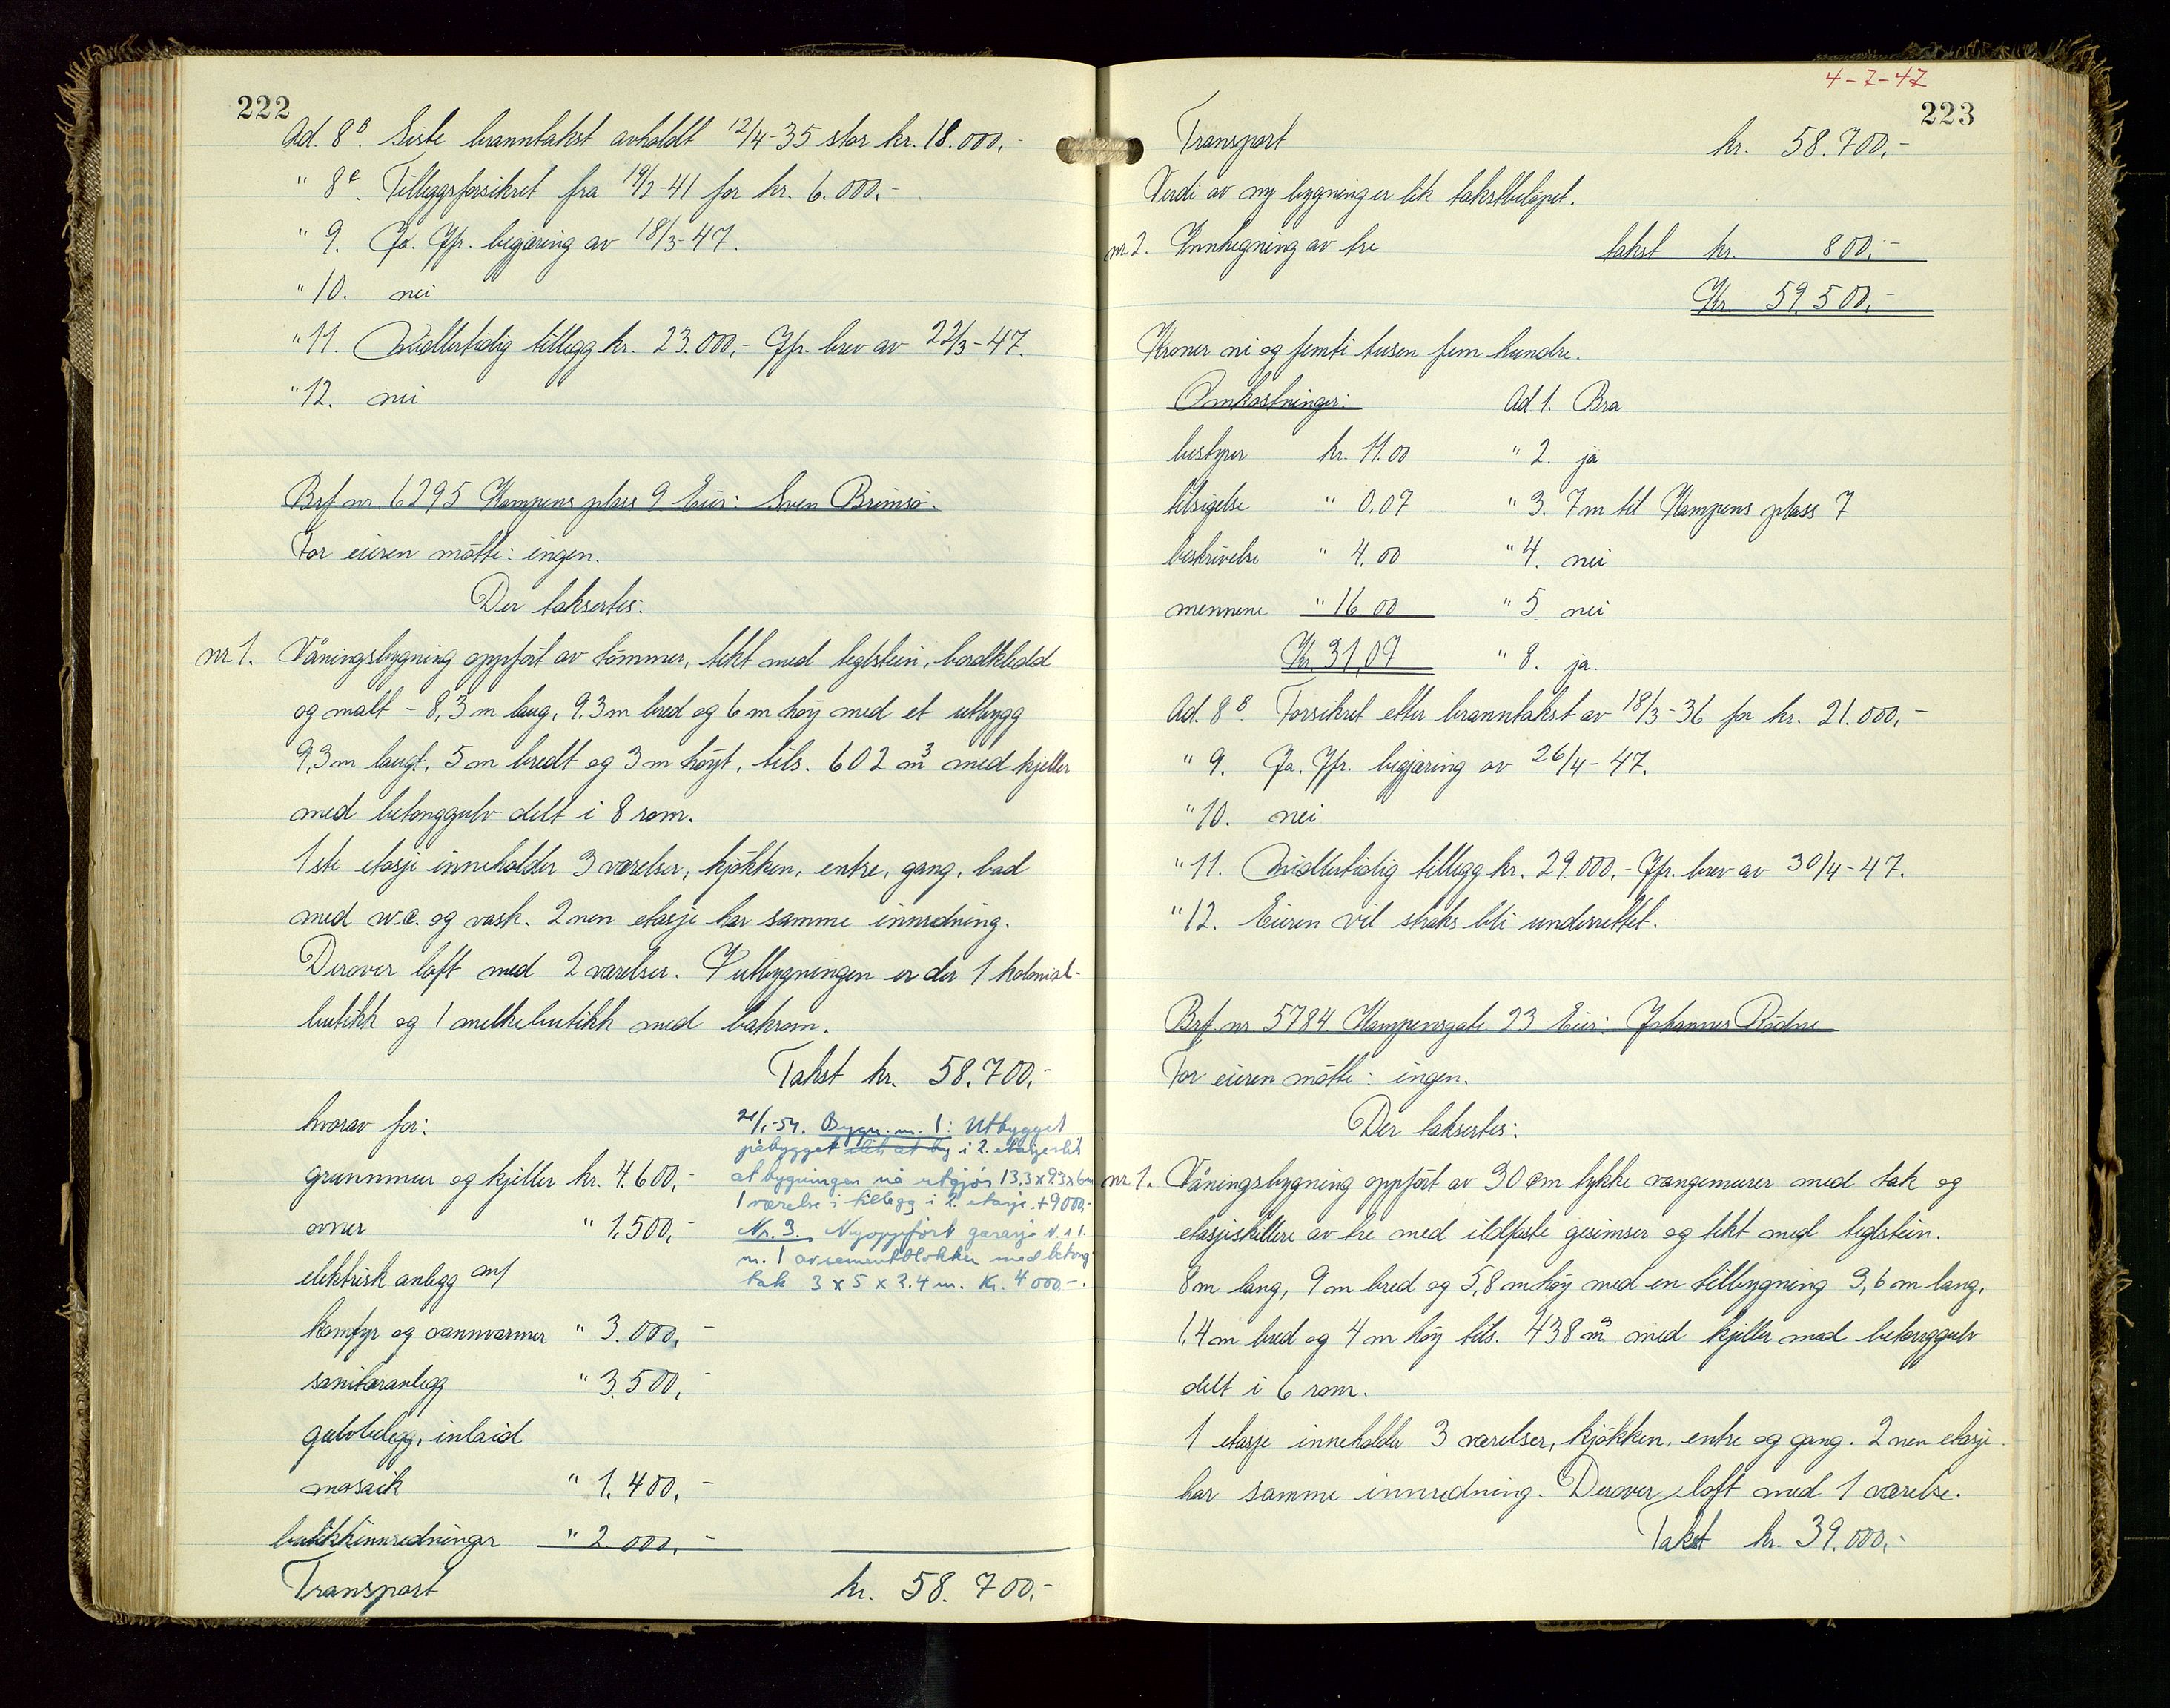 222
Ad. 8ᴮ. Siste branntakst avholdt 12/4-35 stor kr. 18.000,-
" 8ᶜ. Tilleggsforsikret fra 19/2-41 for kr. 6.000.-
" 9. Ja. Jfr. begjæring av 18/3-47.
" 10. nei
" 11. Midlertidig tillegg kr. 23.000,- Jfr. brev av 22/3-47.
" 12. nei
Brf nr. 6295 Kampens plass 9 Eier: Sven Brimsø.
For eieren møtte: ingen.
Der taksertes:
nr 1. Våningsbygning oppført av tømmer, tekt med teglstein, bordkledd
og malt - 8,3 m lang, 9,3 m bred og 6 m høy med et utbygg
9,3 m langt, 5 m bredt og 3 m høyt, tils. 602 m³ med kjeller
med betonggulv delt i 8 rom.
1ste etasje inneholder 3 værelser, kjøkken, entre, gang, bad
med w.c. og vask. 2nen etasje har samme innredning.
Derover loft med 2 værelser. I utbygningen er der 1 kolonial-
butikk og 1 melkebutikk med bakrom.
Takst kr. 58.700,-
hvorav for:
grunnmur og kjeller kr. 4.600,-
ovner " 1.500,-
elektrisk anlegg m/
komfyr og vannvarmer " 3.000,-
sanitæranlegg " 3.500,-
gulvbelegg, inlaid
mosaik " 1.400,-
butikkinnredninger " 2.000,-
Transport kr. 58.700,-
21/1-54. Bygn. nr. 1: Utbygget
påbygget slik at byg i 2. etasje slik
at bygningen nå utgjør 13,3 x 9,3 x 6 m
1 værelse i tillegg i 2. etasje. + 9000,-
Nr. 3. Nyoppført garasje
nr. 1 av sementblokker med betong
tak 3 x 5 x 2.4 m. Kr. 4000-.
4-7-47
223
Transport kr. 58.700,-
Verdi av ny bygning er lik takstbeløpet.
nr 2. Innhegning av tre takst kr. 800,-
Kr. 59.500,-
Kroner ni og femti tusen fem hundre.
Omkostninger: Ad. 1. Bra
bestyrer kr. 11.00 " 2. ja
tilsigelse " 0,07 " 3. 7 m til Kampens plass 7
beskrivelse " 4.00 " 4. nei
mennene " 16 00 " 5. nei
Kr. 31,07 " 8. ja.
Ad. 8ᴮ. Forsikret etter branntakst av 18/3-36 for kr. 21.000,-
" 9. Ja. Jfr. begjæring av 26/4-47.
" 10. nei
" 11. Midlertidig tillegg kr. 29.000,- Jfr. brev av 30/4-47.
" 12. Eieren vil straks bli underrettet.
Brf nr 5784 Kampensgate 23 Eier: Johannes Rødne
For eieren møtte: ingen.
Der taksertes:
nr 1. Våningsbygning oppført av 30 cm tykke vangemurer med tak og
etasjeskillere av tre med ildfaste gesimser og tekt med teglstein.
8 m lang, 9 m bred og 5,8 m høy med en tilbygning 3,6 m lang,
1,4 m bred og 4 m høy tils. 438 m³ med kjeller med betonggulv
delt i 6 rom.
1 etasje inneholder 3 værelser, kjøkken, entre og gang. 2nen etasje
har samme innredning. Derover loft med 1 værelse.
Takst kr. 39.000,-